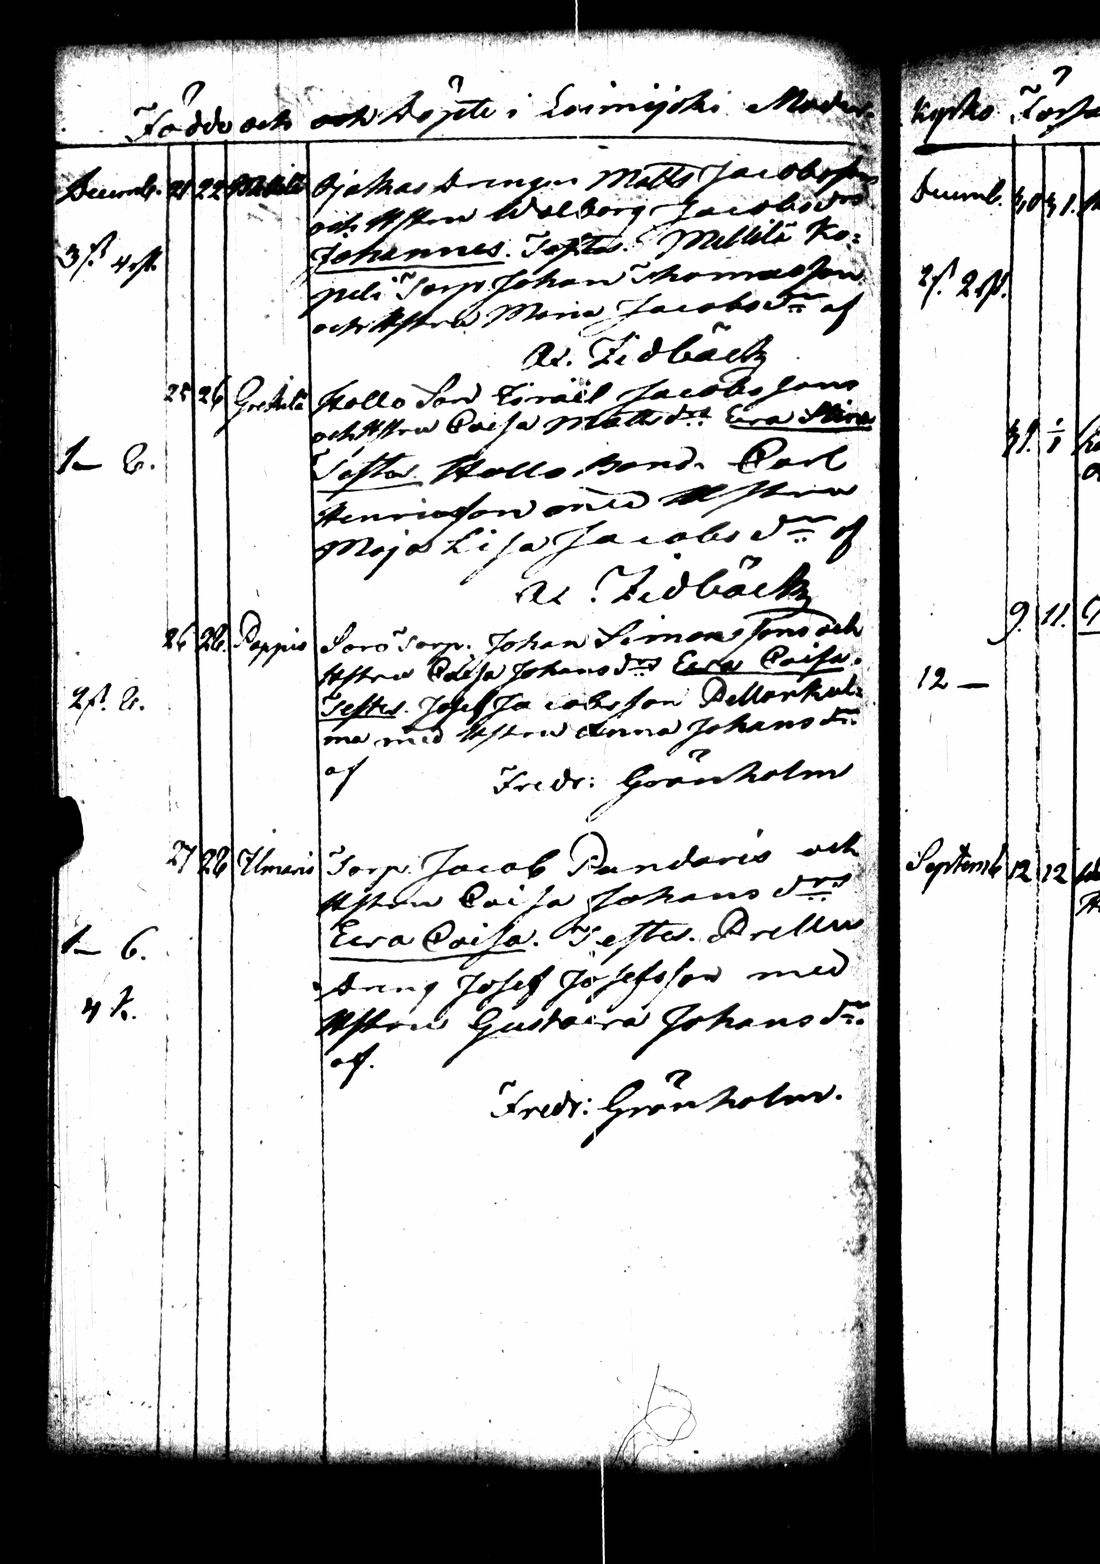 Födde och och Döpte i Loimijoki Moder-
Decemb. 21 22 Mellilä Ojakas Drengen Matts Jacobsson
och Hstru Walborg Jacobsdrs
3 fl. 4 st. Johannes. Testes. Mellilä Ko=
peli Torp. Johan Thomasson
och Hstru Maria Jacobsdr af
Ac. Zidbäck
25 26 Grekilä Hollo Son Israel Jacobssons
och Hstru Caisa Mattsdrs Eva Stina
1 — 6. Testes. Hollo Bond. Carl
Henricsson med Hstru
Maja Lisa Jacobsdr af
Ac. Zidbäck
26 28. Pappis Soro Torp. Johan Simonssons och
Hstru Caisa Johansdrs Eva Caisa.
2 fl. 6. Testes. Josef Jacobsson Pellonkul=
ma med Hstru Anna Johansdr
af Fredr: Grönholm
27 28 Ilmaris Torp. Jacob Pundaris och
Hstru Caisa Johansdrs
1 — 6. Eva Caisa. Testes. Prellus
Dreng Josef Josefsson med
4 k. Hstru Gustava Johansdr
af.
Fredr: Grönholm.
Kyrko Försa
Decemb. 30 31.
2 f. 2 st.
31. 1/1
9. 11.
12 —
Septemb 12 12